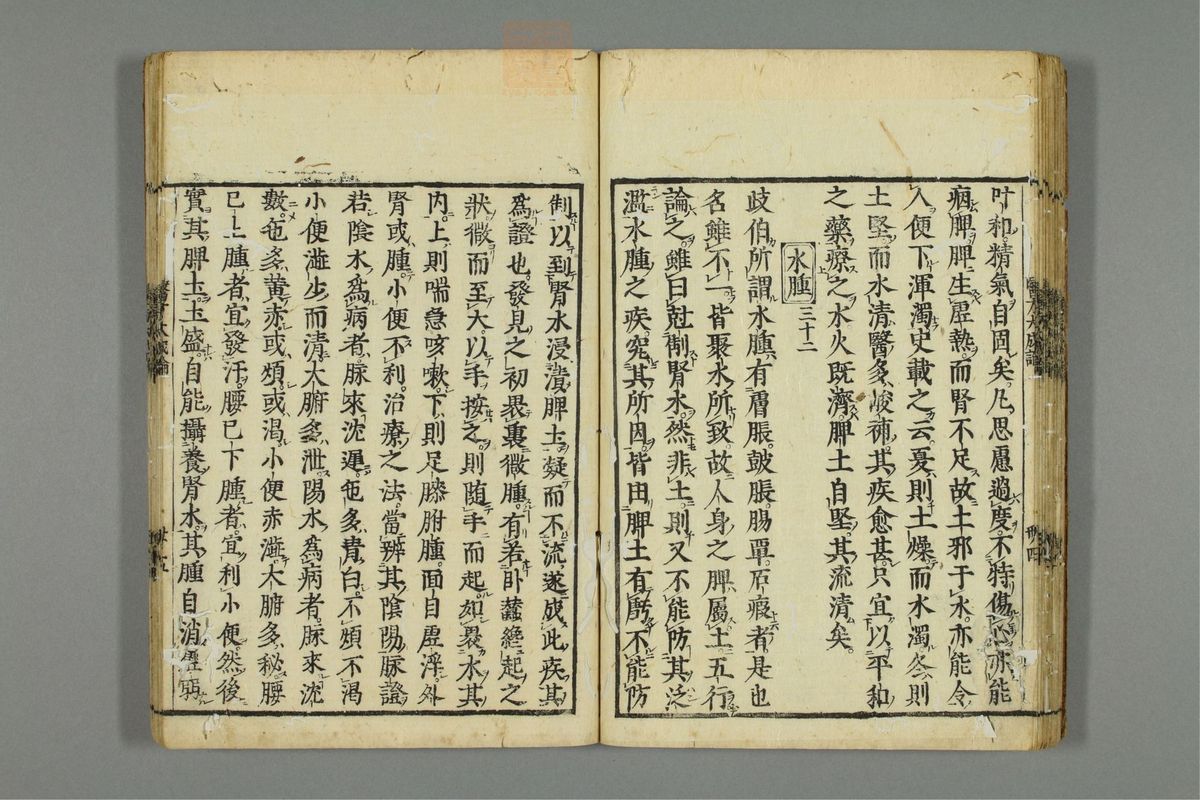 叶和精氣自固矣凡思慮過度不特傷心亦能
病脾脾生虛熱而腎不足故土邪于水亦能令
入便下渾濁史載之云夏則土燥而水濁冬則
土堅而水清醫多峻補其疾愈甚只宜以平和
之藥療之水火既濟脾土自堅其流清矣
水腫 三十二
歧伯所謂水腫有膚脹皷脹腸覃石瘕者是也
名雖不一皆聚水所致故人身之脾屬土五行
論之雖曰尅制腎水然非土則又不能防其泛
濫水腫之疾究其所因皆由脾土有虧不能防
制以到腎水浸漬脾土凝而不流遂成此疾其
為證也發見之初裹微腫有若卧蠶繞起之
狀微而至大以手按之則随手而起如裹水其
内上則喘急咳嗽下則足膝胕腫面目虛浮外
腎或腫小便不利治療之法當辨其陰陽脉證
若陰水為病者脉來沈遲色多青白不煩不渴
小便澁少而清大腑多泄陽水為病者脉來沈
數色多黄赤或煩或渴小便赤澁大腑多秘腰
已上腫者宜發汗腰已下腫者宜利小便然後
實其脾土土盛自能攝養腎水其腫自消虛弱